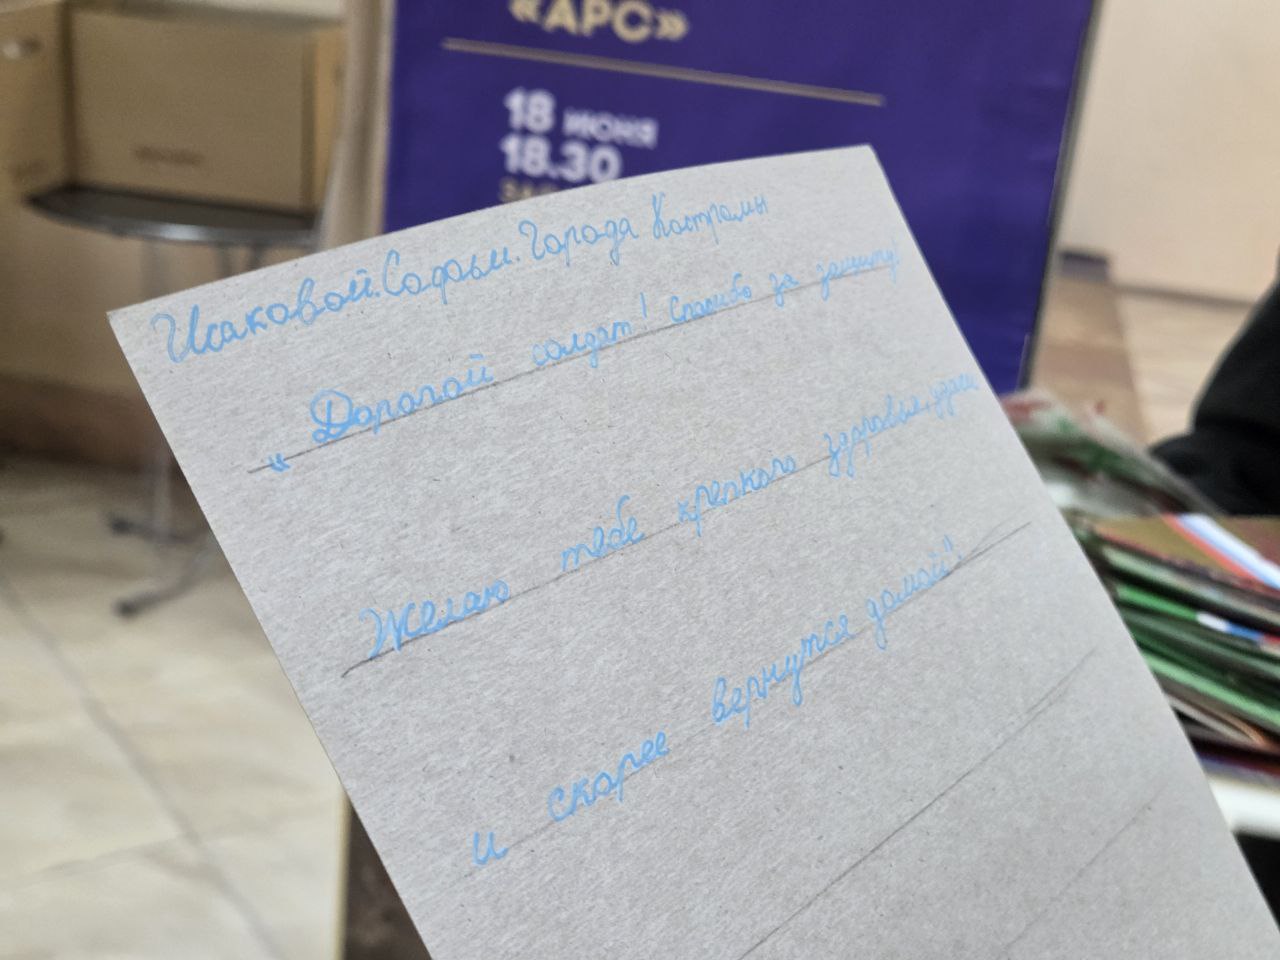 «АРС»
18 июня
18.30
Исаковой.Софьи.Города Костромы
" Дорогой солдат! Спасибо за защиту!
Желаю тебе крепкого здоровья, удачи
и скорее вернутся домой!